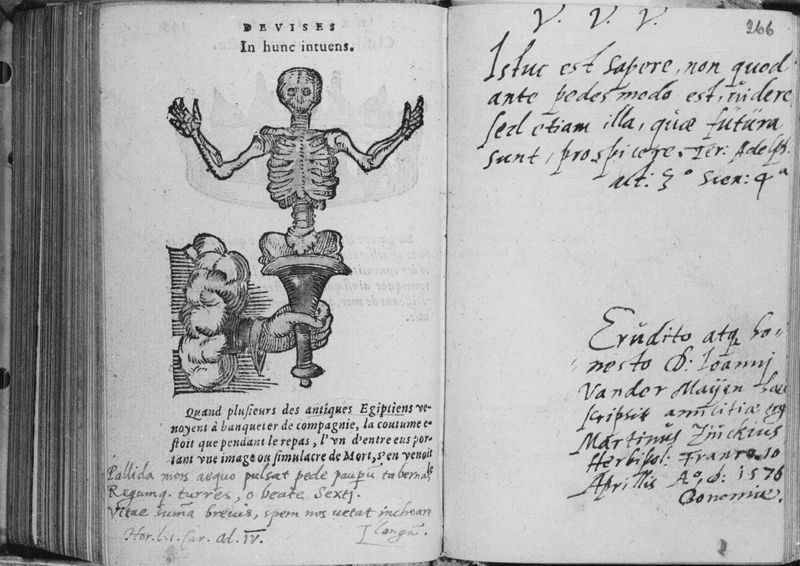 DEVISES
In hunc intuens.
Quand plusieurs des antiques Egiptiens ve-
noyent à banqueter de compagnie, la coutume e-
stoit que pendant le repas, l'vn d'entre eus por-
tant vne image ou simulacre de Mort, s'en venoit
le
Pallida mors aequo pulsat pede paupū tabernas
Regumq. turres, o beate Sexti.
Vitae sum̄a brevis, spem nos vetat inchoare
Longā.
Hor. l. 1. Car. Od. IV.
V. V. V.
266
Istuc est sapere, non quod
ante pedes modo est, videre
sed etiam illa, quæ futura
sunt, prospicere. Ter: Adelph.
act: 3° Scen: 4a
Erudito atq. ho-
nesto D. Ioanni
Vander Maijen haec
scripsit amicitiae ergo
Martinus Zinckius
Herbipol: Franco 10
Aprilis A° d: 1576
Bononiae.